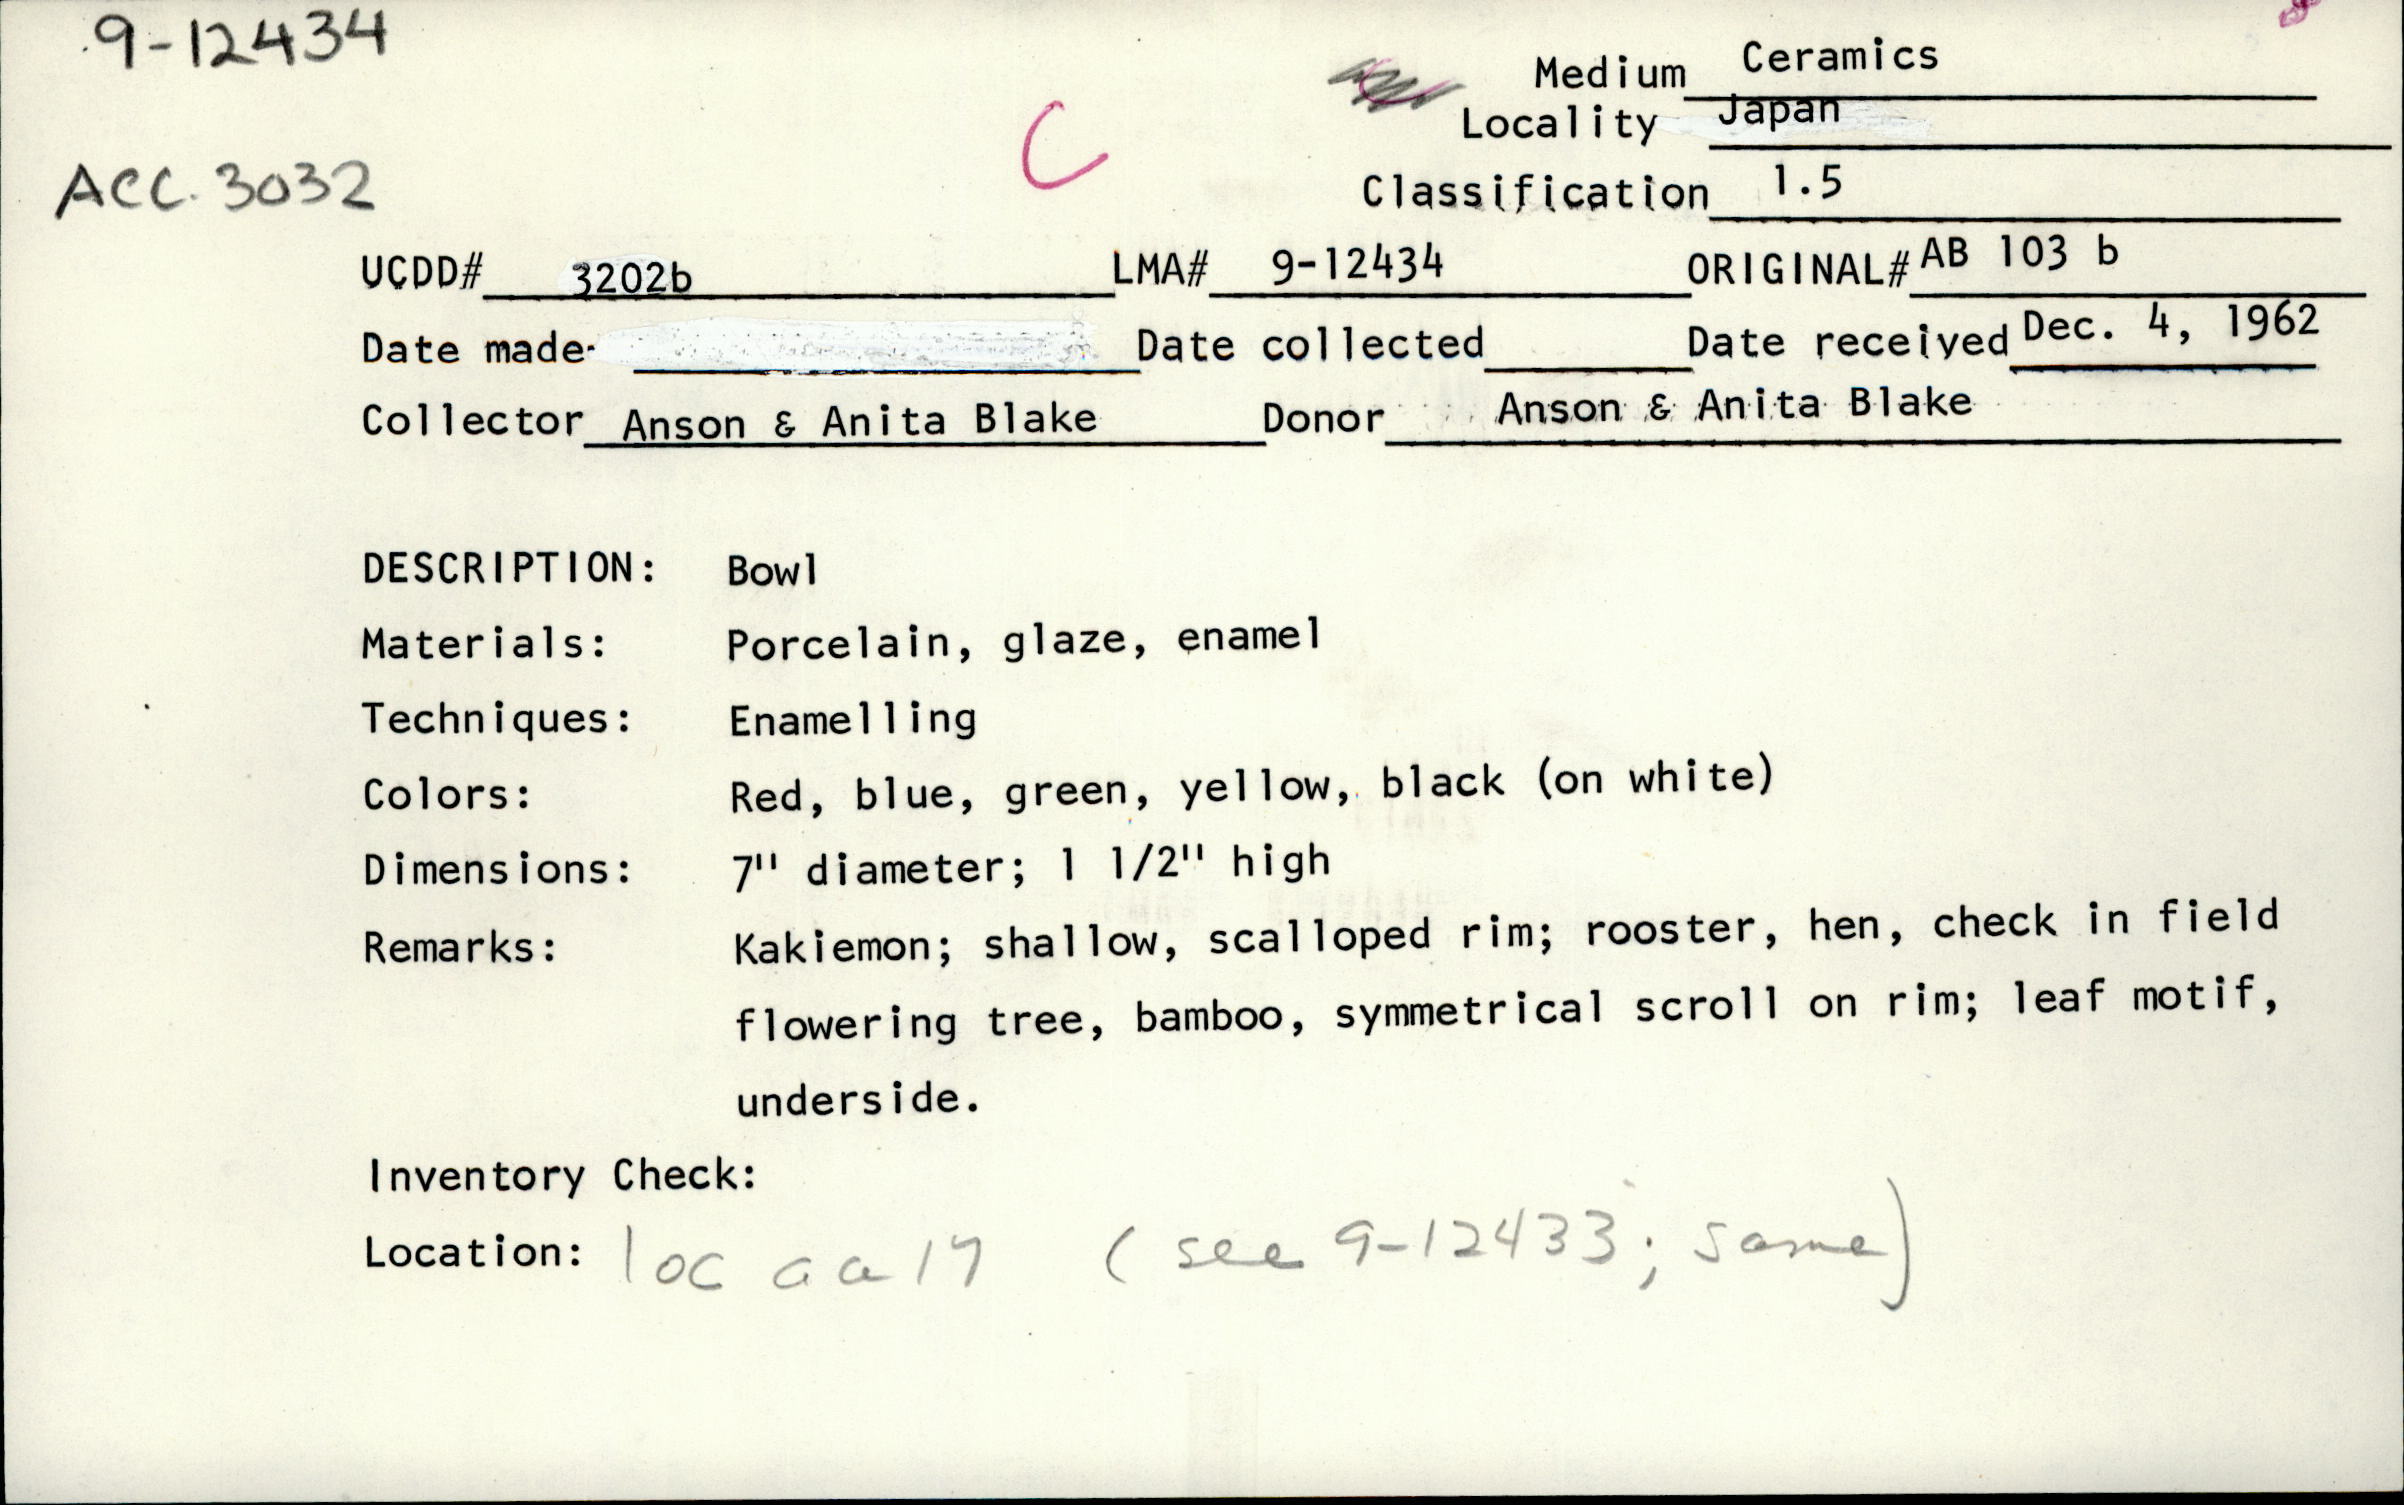 9-12434
Medium Ceramics
Locality Japan
C
ACC. 3032
Classification 1.5
UCDD# 3202b LMA# 9-12434 ORIGINAL# AB 103 b
Date made Date collected Date received Dec. 4, 1962
Collector Anson & Anita Blake Donor Anson & Anita Blake
DESCRIPTION: Bowl
Materials: Porcelain, glaze, enamel
Techniques: Enamelling
Colors: Red, blue, green, yellow, black (on white)
Dimensions: 7" diameter; 1 1/2" high
Remarks: Kakiemon; shallow, scalloped rim; rooster, hen, check in field
flowering tree, bamboo, symmetrical scroll on rim; leaf motif,
underside.
Inventory Check:
Location: loc aa (see 9-12433; same)